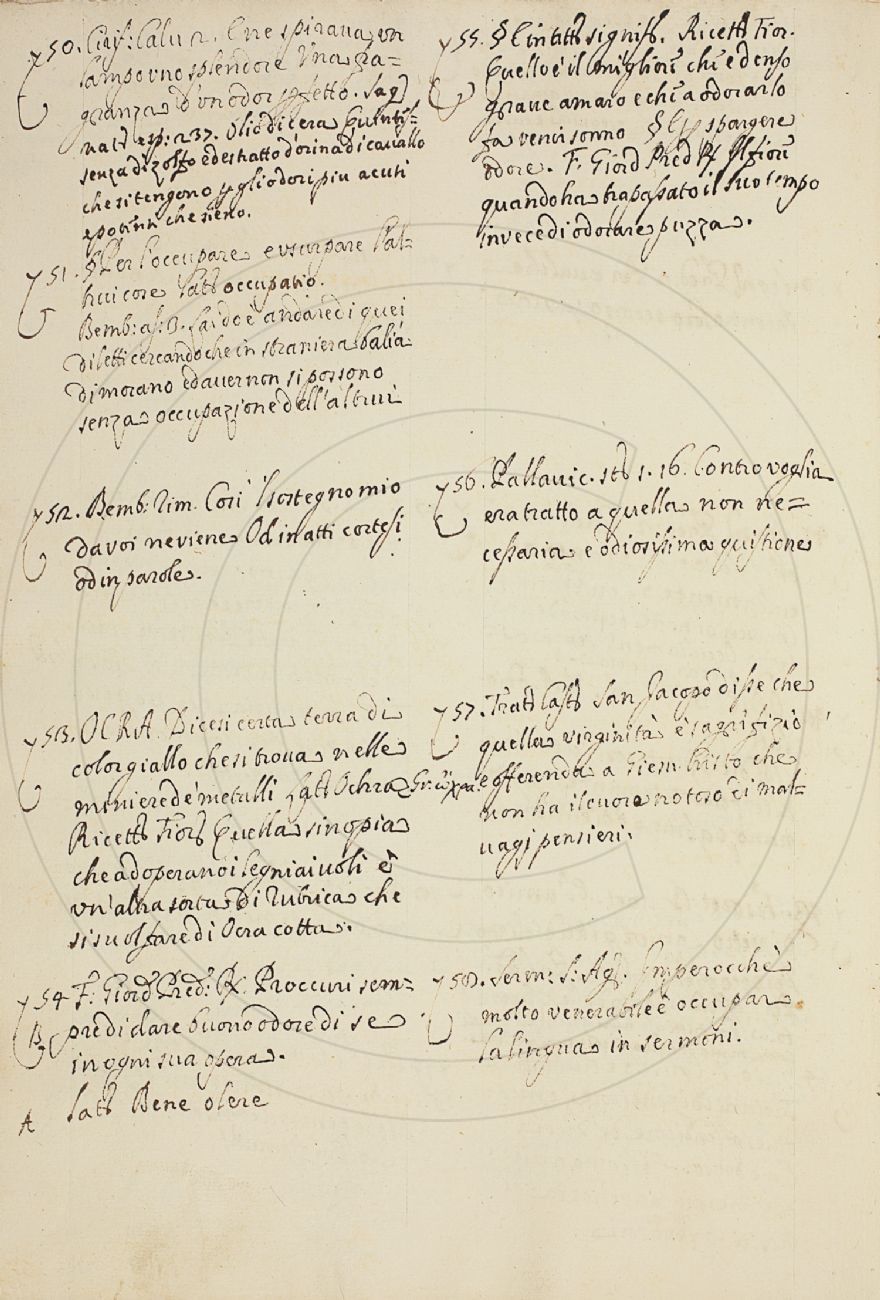 50. Calu. 2. E ne spiraua un
lampo uno splendore Una fra=
granza d'un odor perfetto. Sag.
nat. esp: 237. Olio di cera Quint.=
senza di zolfo ed estratto d'orina di cauallo
che si tengono p gli odori piu acuti
e potenti che sieno.
51. § Per l'occupare e usurpare l'al=
trui cose Latt. occupatio.
Bemb: as: 3. Laido è andare di quei
diletti cercando che in straniera balia
dimorano ed auer non si possono
senza occupazione dell'altrui
52. Bemb: Rim. Così 'l sostegno mio
da voi ne viene Od in atti cortesi
od in parole.
53. OCRA. Dicesi certa terra di
color giallo che si troua nelle
miniere de' metalli Latt. Ochra Gr: ὤχρα.
Ricett. Fior. Quella sinopia
che adoperano i legniaiuoli è
un'altra sorta di Rubrica che
si suol fare di Ocra cotta.
54 F. Giord. Pred: R. Proccuri sem=
B pre di dare buono odore di se
in ogni sua opera.
A Latt. Bene olere
55. § In tt. signif. Ricett. Fior.
Quello è il migliore che è denso
graue amaro e che a odorarlo
fa venir sonno § E p spargere
odore. F. Giord. Pred. R. Il fiore
quando ha trapassato il suo tempo
in vece di odorare puzza.
56. Pallauic. st. 1. 16. Contro voglia
era tratto a quella non ne=
cessaria e odiosissima quistione
57. Tratt. Cast. San Jacopo disse che
quella virginità è sagrifizio
e offerenda a Giem Cristo che
non ha il cuore notoso e i mal=
uagi pensieri.
58. Serm: S: Ag. Imperocchè
molto venerabile è occupar
la lingua in sermoni.